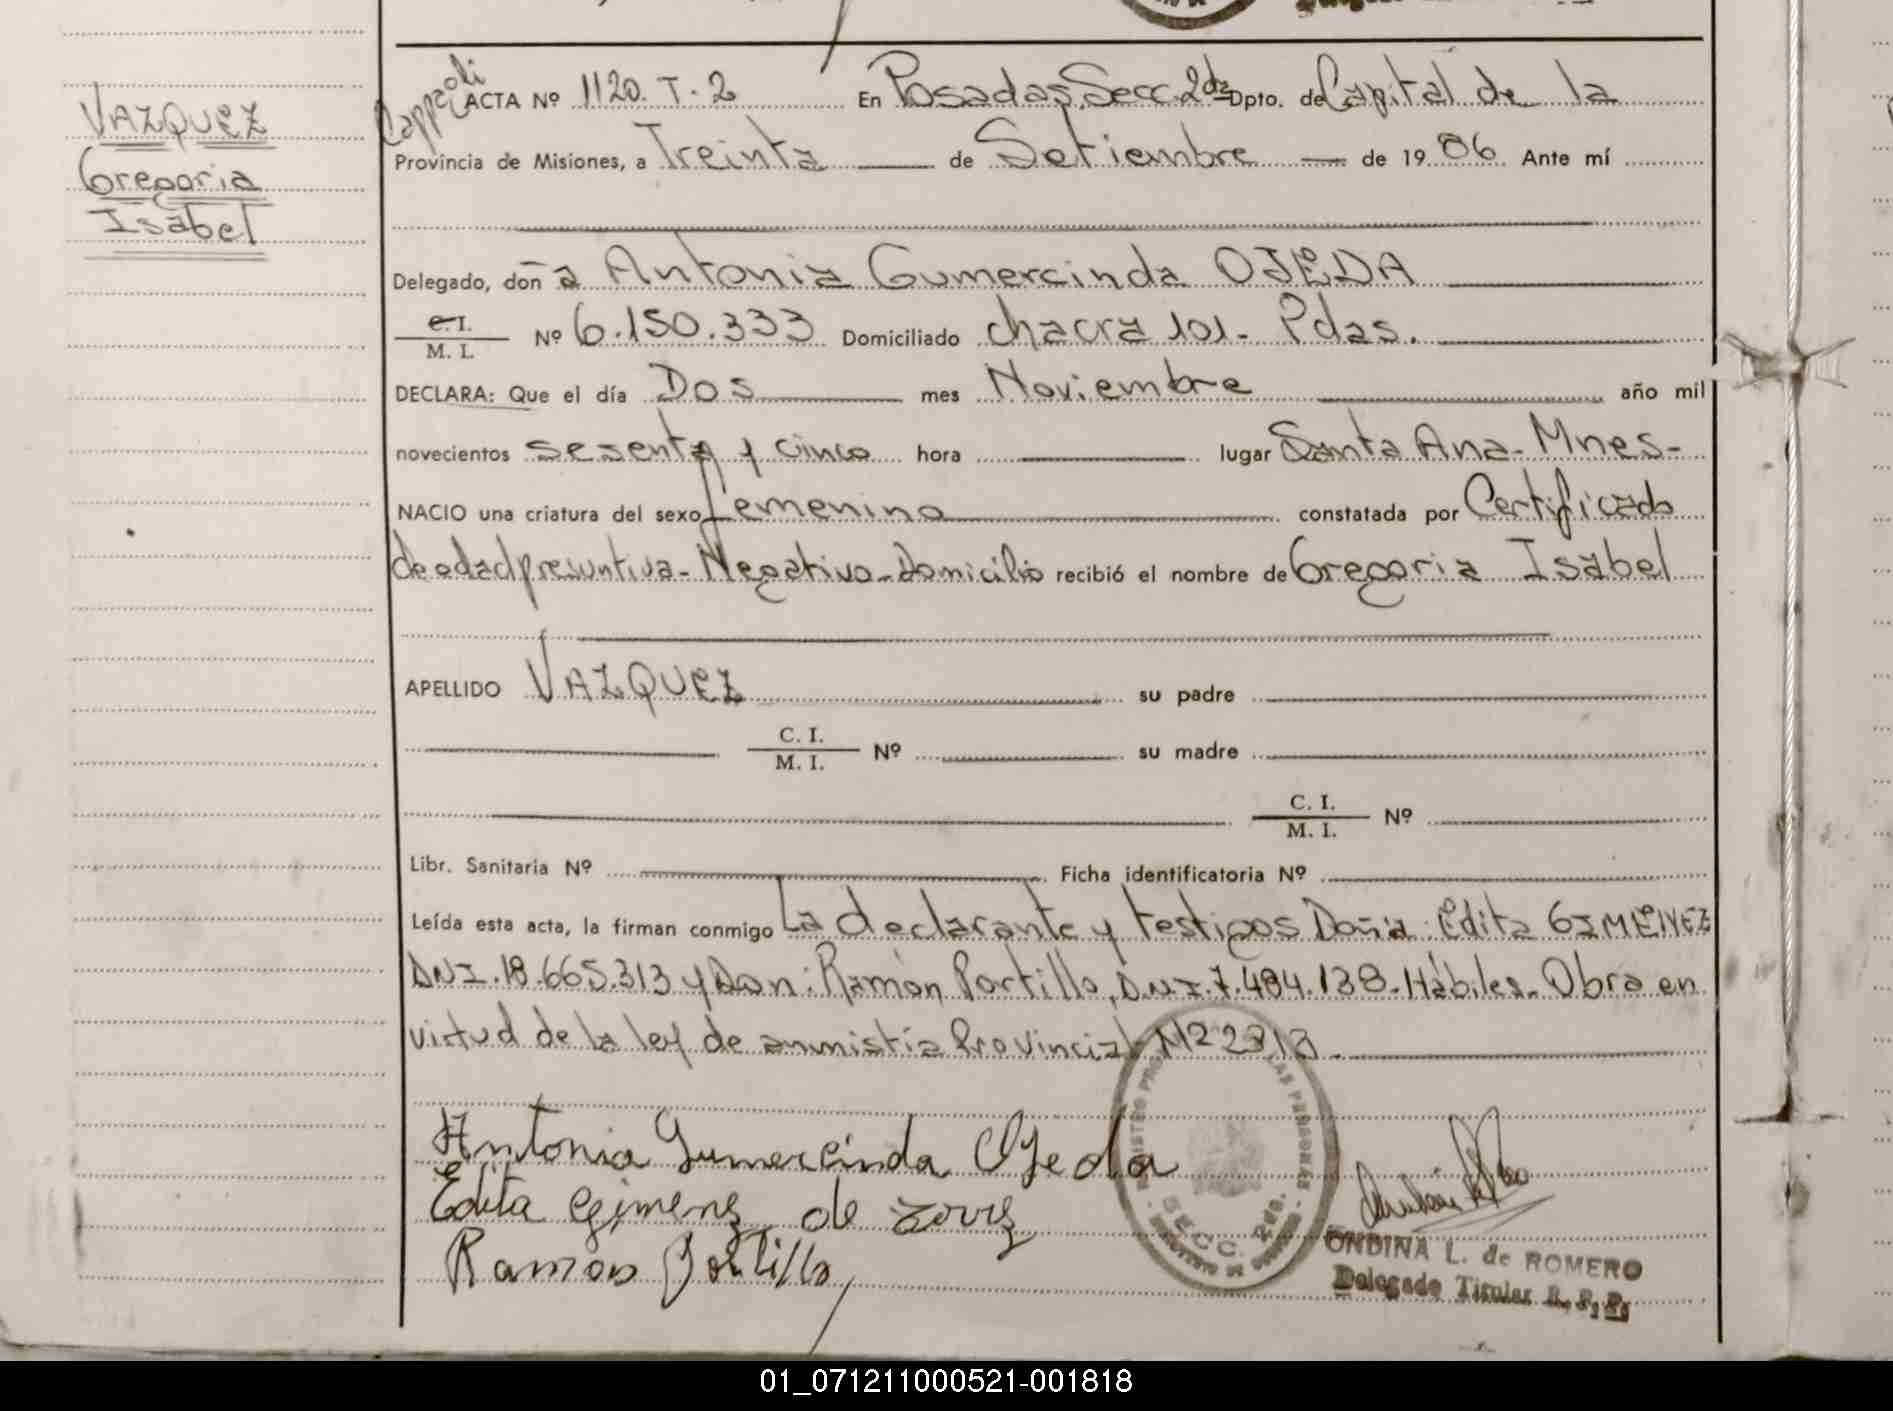 VAZQUEZ
Gregoria
Isabel
Cappoli
ACTA Nº 1120. T. 2 En Posadas Secc. 2da Dpto. de Capital de la
Provincia de Misiones, a Treinta de Setiembre de 1986 Ante mí
Delegado, doña Antonia Gumercinda OJEDA
C.I.
M. I. Nº 6.150.333 Domiciliado chacra 101- Pdas.
DECLARA: Que el día Dos mes Noviembre año mil
novecientos sesenta y cinco hora lugar Santa Ana-Mnes-
NACIO una criatura del sexo femenino constatada por Certificado
de edad presuntiva-Negativo-Domicilio recibió el nombre de Gregoria Isabel
APELLIDO VAZQUEZ su padre
C. I.
M. I. Nº su madre
C. I.
M. I. Nº
Libr. Sanitaria Nº Ficha identificatoria Nº
Leída esta acta, la firman conmigo La declarante y testigos Doña: Edita GIMENEZ
DNI.18.665.313 y Don: Ramón Portillo, DNI.7.484.138-Hábiles-Obra en
virtud de la ley de anmistía Provincial Nº
Antonia Gumercinda Ojeda
Edita Gimenez de
Ramon Portillo
SECC. 2da.
ONDINA L. de ROMERO
Delegado Titular R. P. P.
01_071211000521-001818